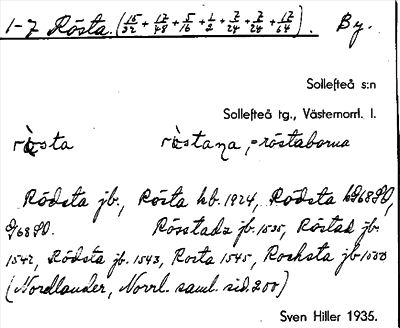 1-7 Rösta. (15/32 + 17/48 + 5/16 + 1/2 + 7/24 + 7/24 + 17/64). By.
Sollefteå s:n
Sollefteå tg., Västernorrl. l.
rösta röstana, = röstaborna
Rödsta jb., Rösta hb. 1924, Rödsta
Rösstada jb. 1535, Röstad jb.
1542, Rödsta jb. 1543, Rosta 1545, Rochsta jb 1550
(Nordlander, Norrl. saml. sid. 200)
Sven Hiller 1935.